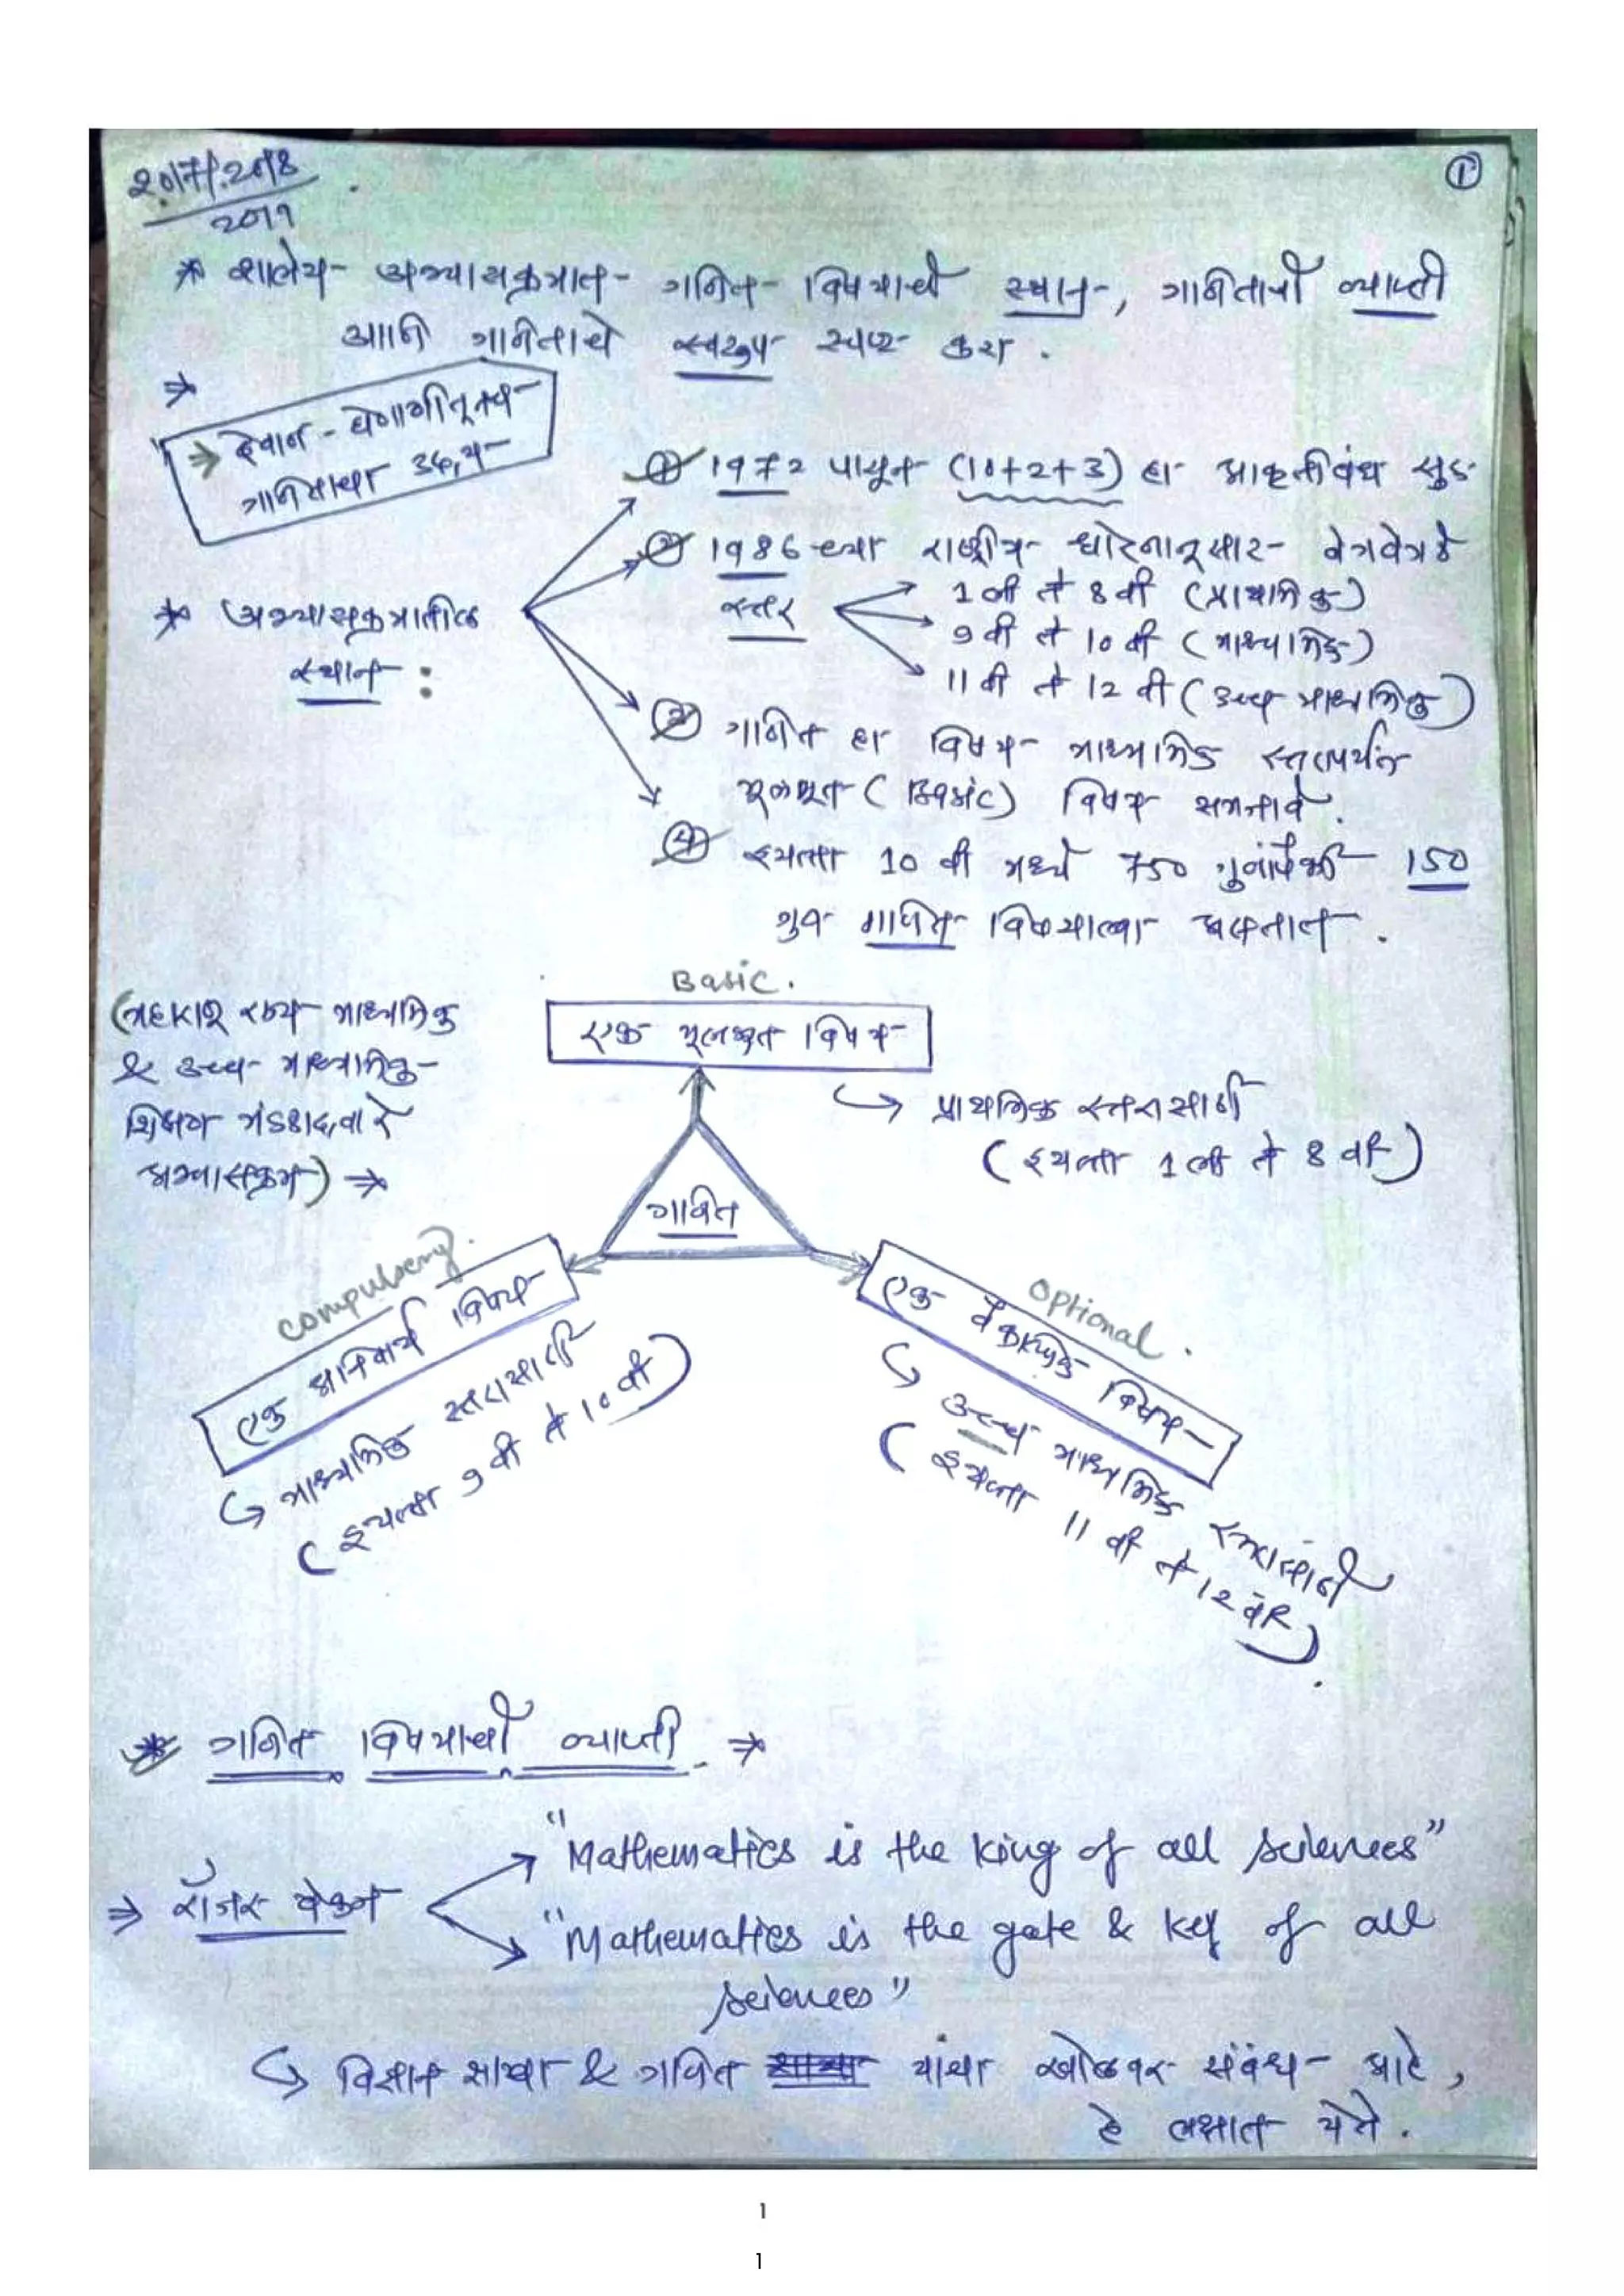 2017/2018
2019
①
* शालेय अभ्यासक्रमात गणित विषयाचे स्थान, गणिताची व्याप्ती
आणि गणिताचे स्वरूप स्पष्ट करा.
⇒
→ देवाण-घेवाणीतूनच
गणिताचा उदय
* अभ्यासक्रमातील
स्थान :
① 1972 पासून (10+2+3) हा आकृतीबंध सुरु
② 1986 च्या राष्ट्रीय धोरणानुसार वेगवेगळे
स्तर
1 ली ते 8 वी (प्राथमिक)
9 वी ते 10 वी (माध्यमिक)
11 वी ते 12 वी (उच्च माध्यमिक)
③ गणित हा विषय माध्यमिक स्तरापर्यंत
मूलभूत (Basic) विषय समजावे.
④ इयत्ता 10 वी मध्ये 750 गुणांपैकी 150
गुण गणित विषयाला असतात.
(महाराष्ट्र राज्य माध्यमिक
& उच्च माध्यमिक
शिक्षण मंडळाद्वारे
अभ्यासक्रम) ⇒
Basic.
एक मूलभूत विषय
↪ प्राथमिक स्तरासाठी
(इयत्ता 1 ली ते 8 वी)
गणित
compulsory.
एक अनिवार्य विषय
↪ माध्यमिक स्तरासाठी
(इयत्ता 9 वी ते 10 वी)
optional.
एक वैकल्पिक विषय
↪ उच्च माध्यमिक स्तरासाठी
(इयत्ता 11 वी ते 12 वी).
* गणित विषयाची व्याप्ती. ⇒
⇒ रॉजर बेकन
"Mathematics is the king of all sciences"
"Mathematics is the gate & key of all
sciences"
↪ विज्ञान शाखा & गणित यांचा खोलवर संबंध आहे,
हे लक्षात येते.
1
1